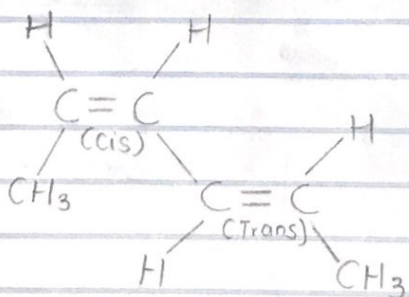 H H
C = C
(Cis) H
CH3 C = C
(Trans)
H CH3